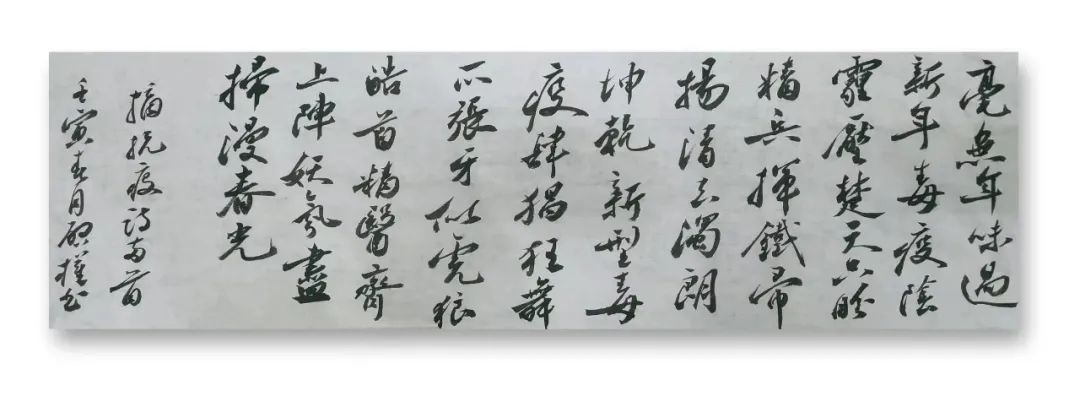 毫無年味過
新年毒疫陰
霾壓楚天只盼
精兵揮鐵帚
揚清去濁朗
坤乾新型毒
疫肆猖狂舞
爪張牙似虎狼
皓首精醫齊
上陣妖氛盡
掃漫春光
摘抗疫詩两首
壬寅春月書